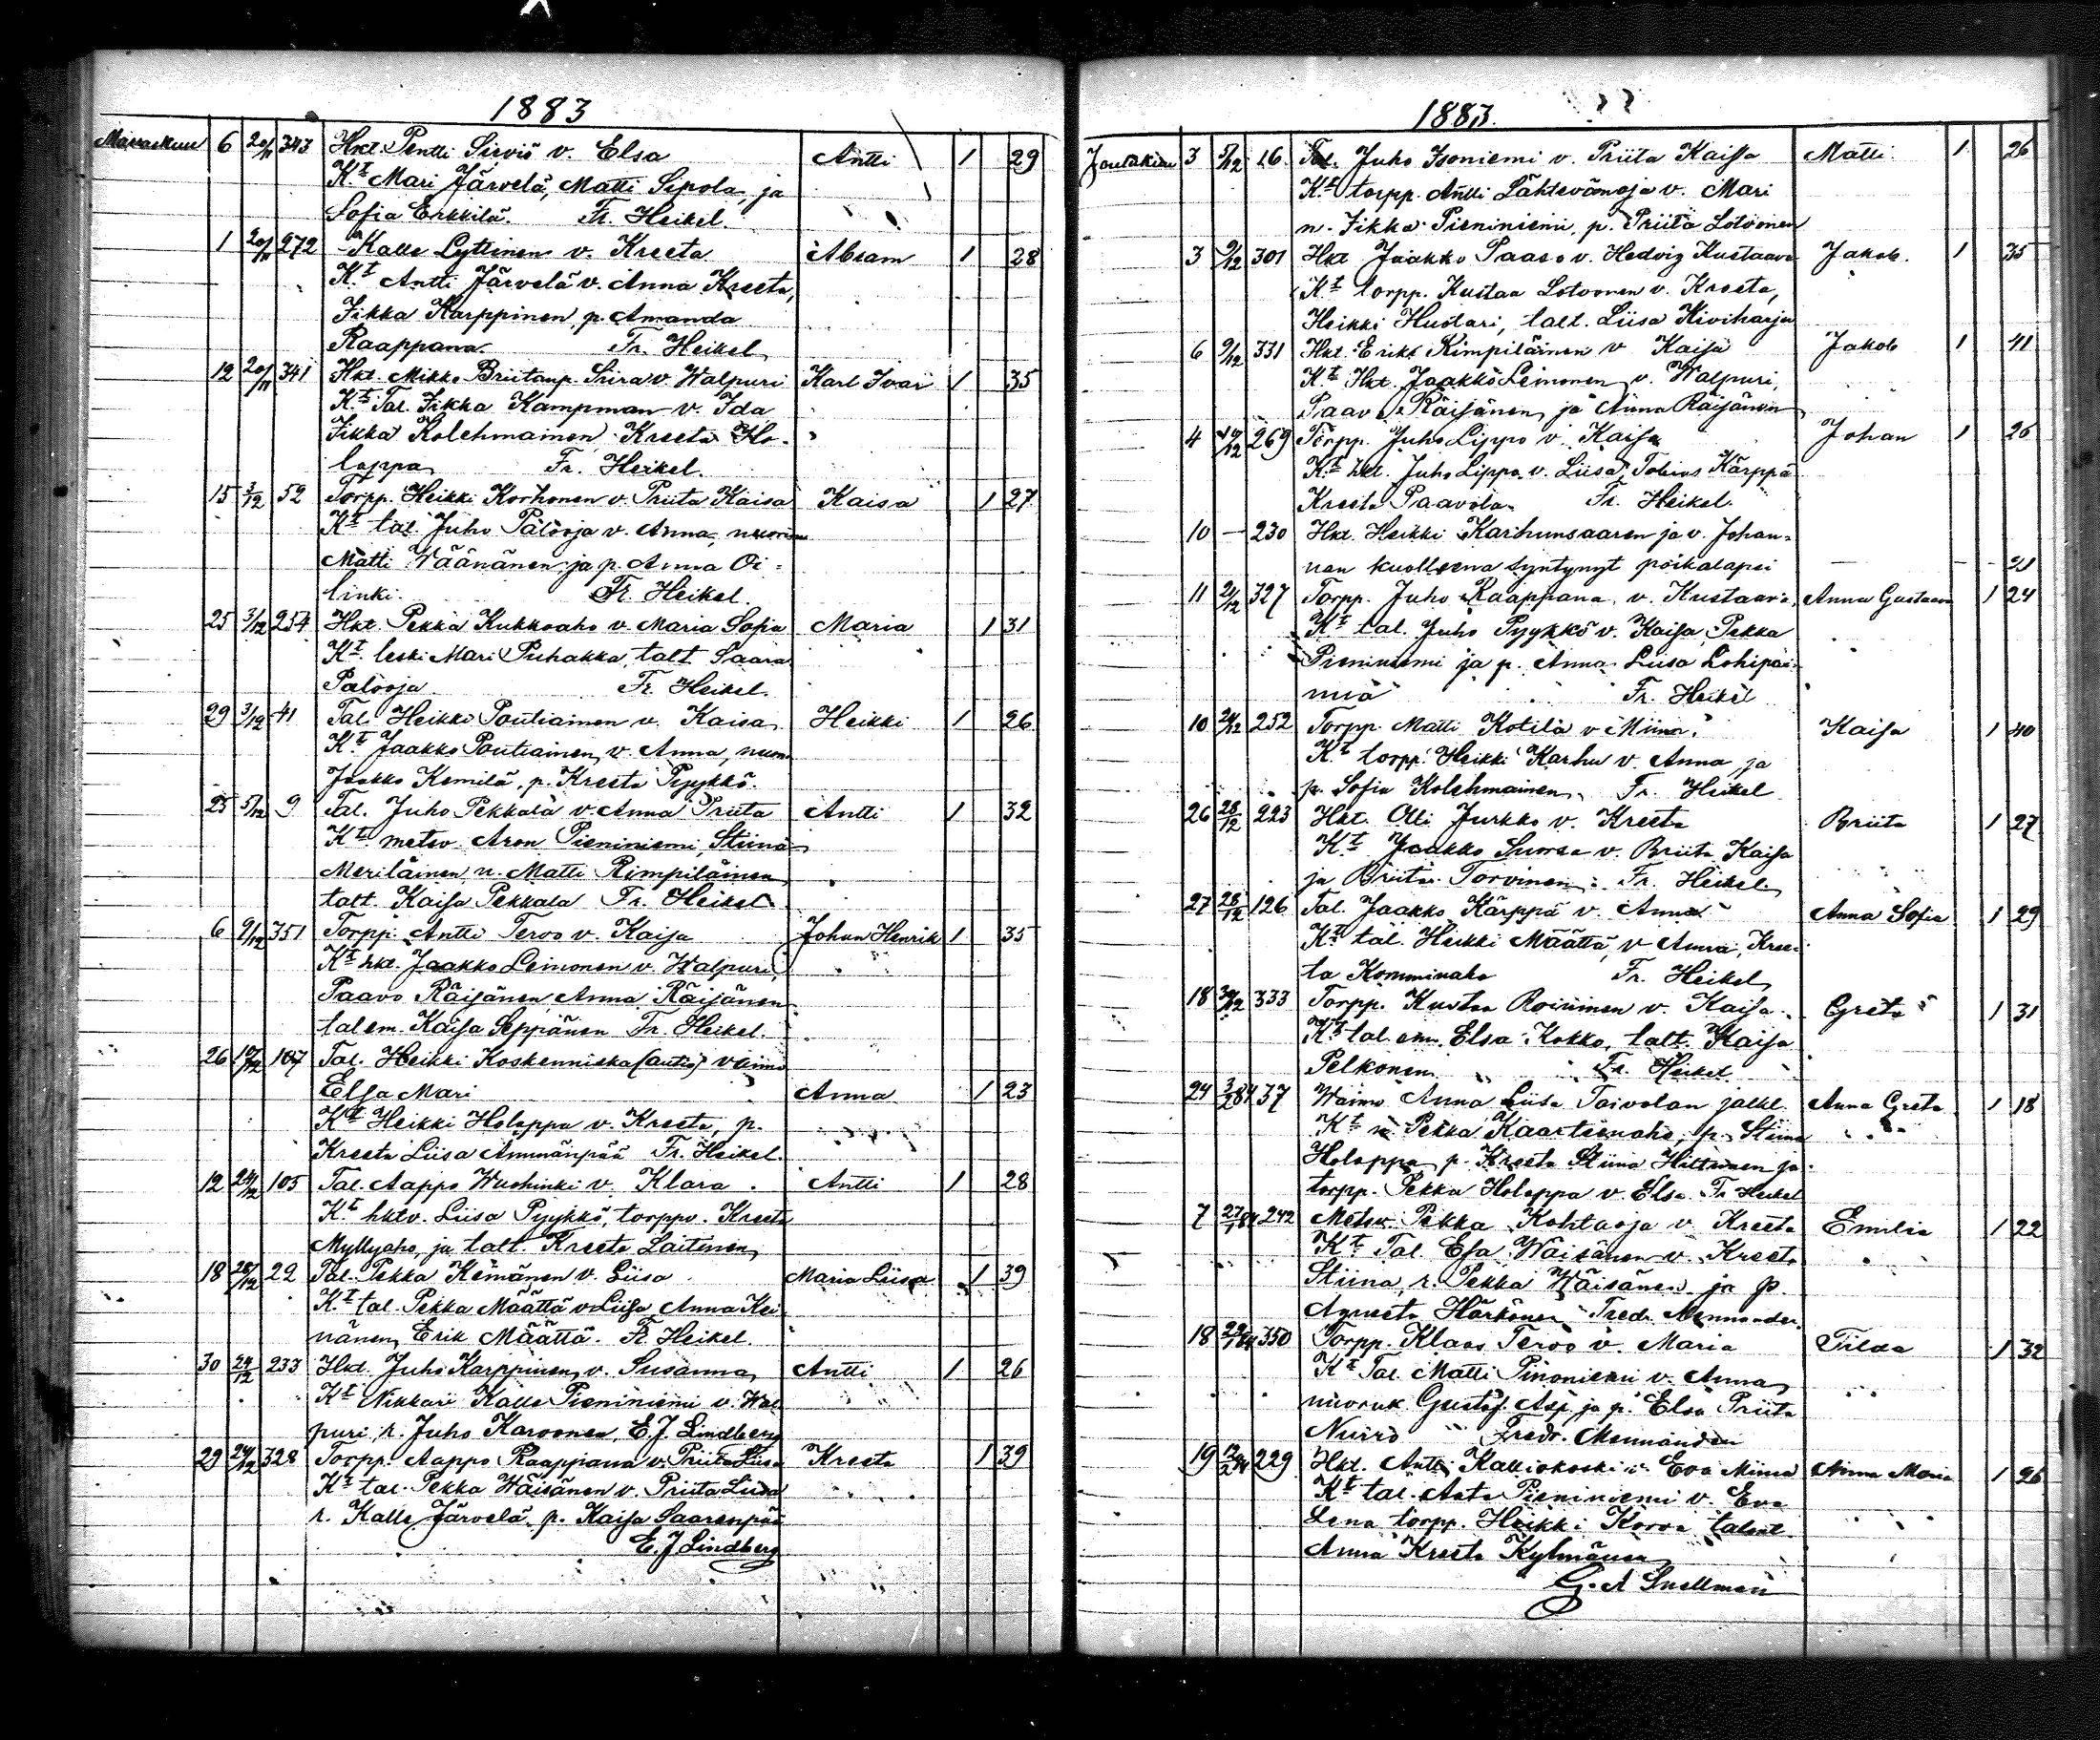 1883
Marraskuu 6 20/11 343 Hkt. Pentti Sirviö v. Elsa Antti 1 29
Kt Mari Järvelä, Matti Sipola, ja
Sofia Erkkilä. Fr. Heikel.
1 20/11 272 Kalle Lyttinen v. Kreeta Abram 1 28
Kt Antti Järvelä v. Anna Kreeta,
Fikka Karppinen, p. Amanda
Raappana. Fr. Heikel
12 20/11 341 Hkt. Mikko Siira v. Walpuri Karl Ivar 1 35
Kt Tal. Fikka Kampman v. Ida
Fikka Kolehmainen Kreeta Ho-
lappa Fr. Heikel.
15 3/12 52 Torpp. Heikki Korhonen v. Priita Kaisa Kaisa 1 27
Kt tal. Juho Palooja v. Anna, nuorim
Matti Wäänänen ja p. Anna Oi-
linki. Fr. Heikel
25 3/12 254 Hkt. Pekka Kukkoaho v. Maria Sofia Maria 1 31
Kt leski Mari Puhakka, talt Saara
Palooja Fr. Heikel.
29 3/12 41 Tal. Heikki Poutiainen v. Kaisa Heikki 1 26
Kt Jaakko Poutiainen, v. Anna, nuor
Jaakko Kemilä, p. Kreeta Pyykkö.
25 5/12 9 Tal. Juho Pekkala v. Anna Priita Antti 1 32
Kt metsv. Aron Pieniniemi, Stiina
Meriläinen, n. Matti Rimpiläinen
talt. Kaisa Pekkala Fr. Heikel
6 9/12 351 Torpp. Antti Tervo v. Kaisa Johan Henrik 1 35
Kt hkt. Jaakko Leinonen v. Walpuri,
Paavo Räisänen, Anna Räisänen
talem. Kaisa Seppänen Fr. Heikel.
26 107 Tal. Heikki Koskenniska (autio) vaimo
Elsa Mari Anna 1 23
Kt Heikki Holappa v. Kreeta, p.
Kreeta Liisa Ämmänpää Fr. Heikel.
12 24/12 105 Tal. Aappo Wuohinki v. Klara. Antti 1 28
Kt hktv. Liisa Pyykkö, torppv. Kreeta
Myllyaho, ja talt. Kreeta Laitinen
18 28/12 22 Tal. Pekka Keinänen v. Liisa Maria Liisa 1 39
Kt tal. Pekka Määttä v. Liisa, Anna Kei-
nänen, Erik Määttä. Fr. Heikel.
30 24/12 233 Hkt. Juho Karppinen, v. Susanna Antti 1 26
Kt Nikkari Kalle Pieniniemi v. Wal
puri, r. Juho Karvonen, E. J. Lindberg
29 24/12 328 Torpp. Aappo Raappana v. Priita Liisa Kreeta 1 39
Kt tal. Pekka Wäisänen v. Priita Liisa
r. Kalle Järvelä, p. Kaisa Saarenpää
E. J. Lindberg
1883.
Joulukuu 3 5/12 16 Tal. Juho Isoniemi v. Priita Kaisa Matti 1 26
Kt torpp. Antti Lähtevänoja v. Mari
n. Fikka Pieniniemi, p. Priita Lotvonen
3 9/12 301 Hkt Jaakko Paaso v. Hedvig Kustaava Jakob. 1 35
Kt torpp. Kustaa Lotvonen v. Kreeta,
Heikki Hustari, talt. Liisa Kiviharju
6 9/12 331 Hkt. Erik Rimpiläinen v Kaisa Jakob 1 41
Kt Hkt. Jaakko Leinonen v. Walpuri,
Paavo Räisänen ja Anna Räisänen
4 269 Torpp. Juho Lippo v. Kaisa Johan 1 26
Kt hkt. Juho Lippo v. Liisa, Tobias Kärppä
Kreeta Paavola Fr. Heikel.
10 — 230 Hkt. Heikki Karhunsaaren ja v. Johan-
nan kuolleena syntynyt poikalapsi — - 21
11 21/12 327 Torpp. Juho Raappana, v. Kustaava. Anna Gustaava 1 24
Kt tal. Juho Pyykkö v. Kaisa, Pekka
Pieniniemi ja p. Anna Liisa Lohipäi-
miä Fr. Heikel
10 24/12 252 Torpp. Matti Kotila v Miina. Kaisa 1 40
Kt torpp. Heikki Karhu v. Anna, ja
p. Sofia Kolehmainen. Fr. Heikel
26 28/12 223 Hkt. Olli Jurkko v. Kreeta Briita 1 27
Kt Jaakko Suorsa v. Briita Kaisa
ja Briita Torvinen. Fr. Heikel
27 28/12 126 Tal. Jaakko Kärppä v. Anna. Anna Sofia 1 29
Kt tal. Heikki Määttä, v Anna, Kree-
ta Komminaho Fr. Heikel
18 30/12 333 Torpp. Kustaa Roininen v. Kaisa Greta 1 31
Kt tal. em. Elsa Kokko, talt. Kaisa
Pelkonen Fr. Heikel
24 3/2 84 37 Waimo Anna Liisa Toivolan jälkl. Anna Greta 1 18
Kt Pekka Kaartinaho, p. Stiina
Holappa, p. Kreeta Stiina Hiltunen ja
torpp. Pekka Holappa v. Elsa Fr. Heikel
7 27/1 84 242 Metsv. Pekka Kohtaoja v. Kreeta Emilia 1 22
Kt Tal. Esa Wäisänen v. Kreeta
Stiina, r. Pekka Wäisänen ja p.
Agneeta Härkönen Fredr. Mennander
18 29/1 84 350 Torpp. Klaas Tervo v. Maria Tilda 1 32
Kt Tal. Matti Pinoniemi v. Anna
nuoruk. Gustaf Asp. ja p. Elsa Priita
Nuiro Fredr. Mennander
19 12/2 84 229 Hkt. Antti Kalliokoski v. Eva Miina Anna Maria 1 26
Kt tal. Aate Pieniniemi v. Eva
Lena torpp. Heikki Korva talont
Anna Kreeta Kylmänen
G. A Snellman